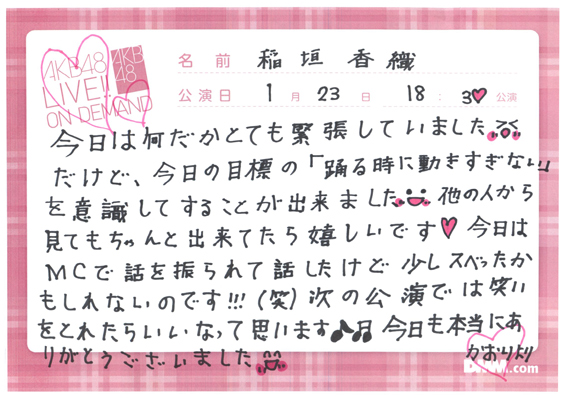 AKB48
LIVE!!
ON DEMAND
AKB
48
名前 稲垣香織
公演日 1月23日 18:30公演
今日は何だかとても緊張していました
だけど、今日の目標の「踊る時に動きすぎない」
を意識してすることが出来ました 他の人から
見てもちゃんと出来てたら嬉しいです♥ 今日は
MCで話を振られて話したけど少しスベったか
もしれないのです!!!(笑)次の公演では笑い
をとれたらいいなって思います♪♫ 今日も本当にあ
りがとうございました
かおりより
DMM.com